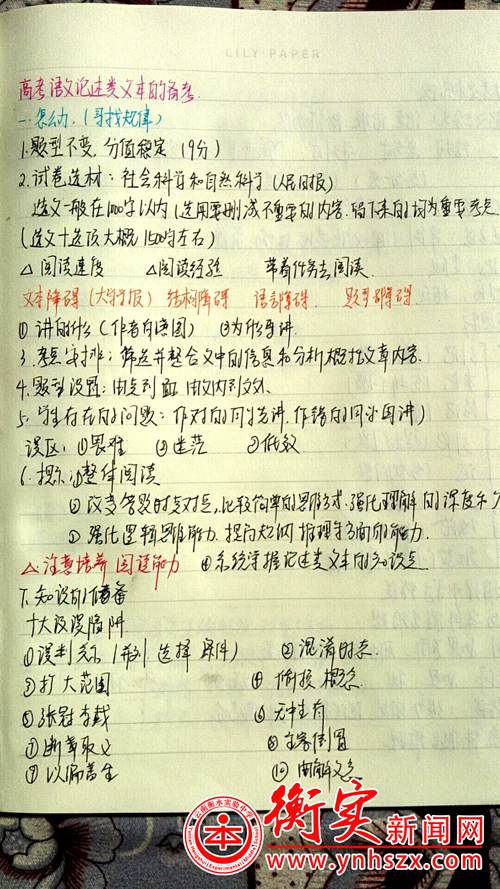 LILY PAPER
高考语文论述类文本的备考.
一.怎么办.(寻找规律)
1.题型不变.分值稳定(9分)
2.试卷选材:社会科学和自然科学(人民日报)
选文一般在1000字以内(选用要删减不重要的内容.留下来的均为重要考点
(选文+选项大概1500字左右)
△阅读速度 △阅读经验 带着任务去阅读.
文本障碍(大学学报) 结构障碍 语言障碍. 题型障碍.
①讲的什么(作者的意图) ②为什么讲.
3.考点安排:筛选并整合文中的信息和分析概括文章内容.
4.题型设置:由点到面 由文内到文外.
5.学生存在的问题:作对的同学先讲.作错的同学再讲)
误区:①畏难 ②迷茫 ③低效
6.提示:①整体阅读
②改变答题时点对点,比较简单的思维方式.强化理解的深度
③强化逻辑思维能力.提高归纳推理等方面的能力.
△注意培养阅读能力 ④系统掌握论述类文本的知识点
下.知识的储备
十大设误陷阱
①误判关系(并列 选择 条件) ②混淆时态.
③扩大范围 ④偷换概念
⑤张冠李戴 ⑥无中生有
⑦断章取义 ⑧主客倒置
⑨以偏盖全 ⑩曲解文意
云南衡水实验中学
本
衡实新闻网
www.ynhszx.com